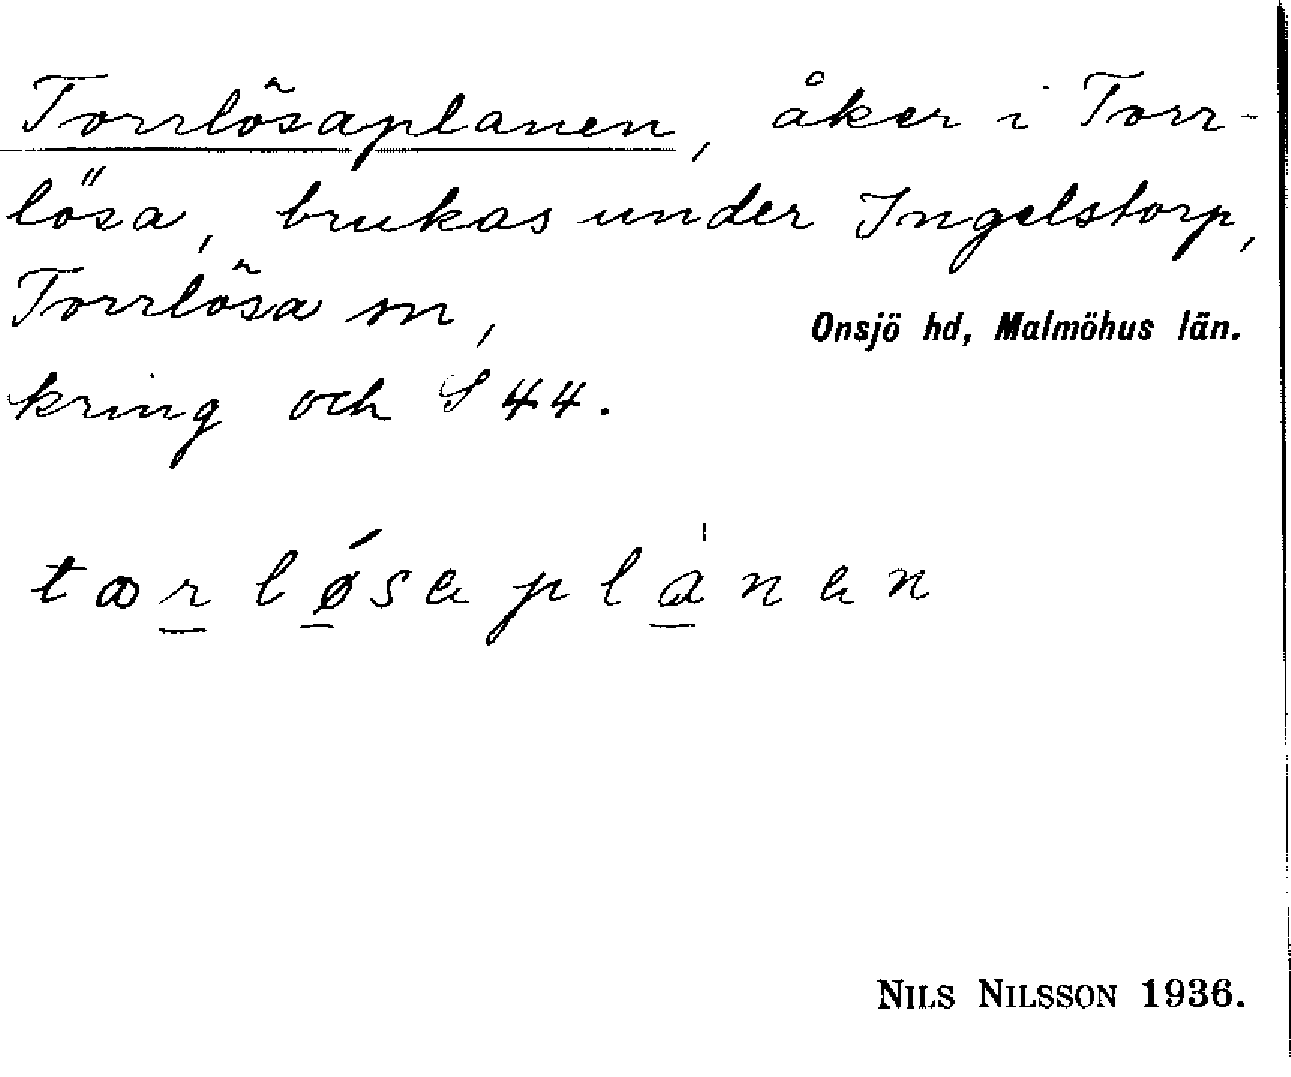 Torrlösaplanen, åker i Torr-
lösa, brukas under Ingelstorp,
Torrlösa sn,
Onsjö hd, Malmöhus län.
kring och S 44.
tɷr løsaplánan
NILS NILSSON 1936.